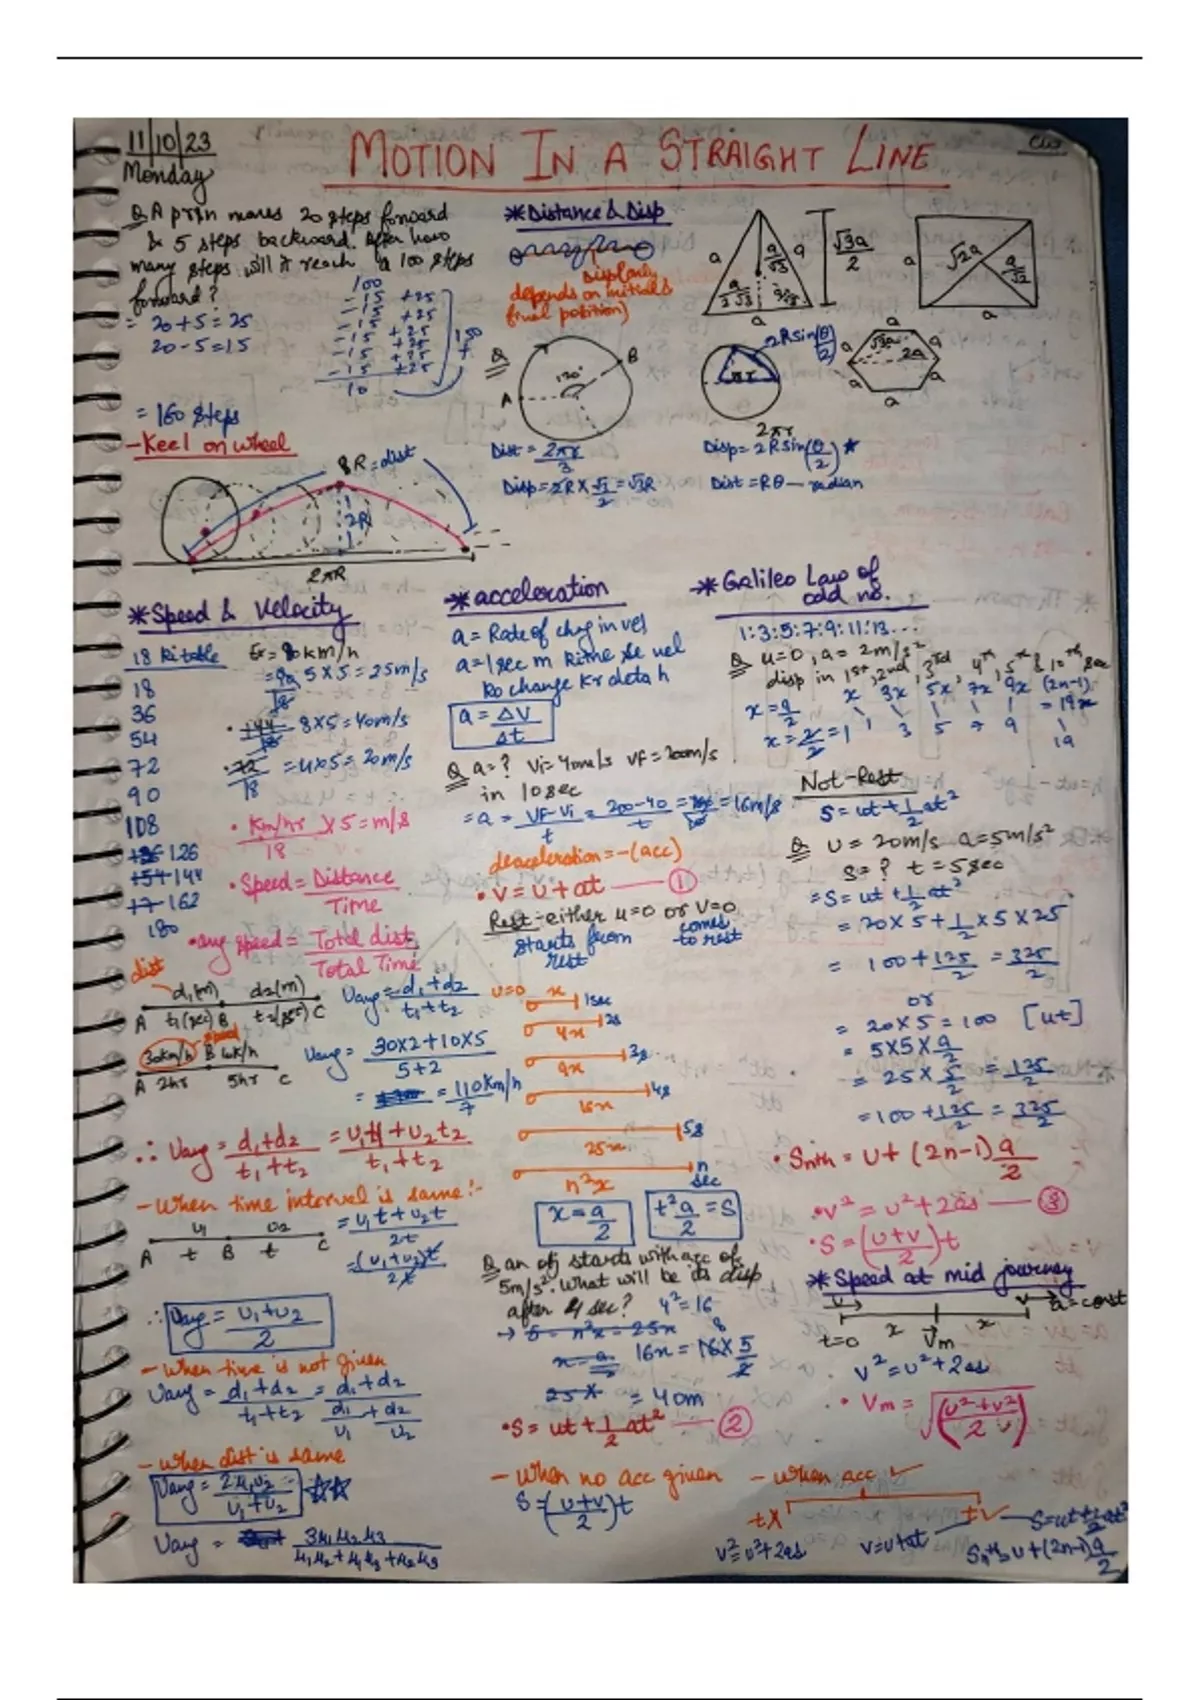 11/10/23
Monday
MOTION IN A STRAIGHT LINE
CW
Q A prsn moves 20 steps forward
& 5 steps backward. After how
many steps will it reach a 100 steps
forward?
= 20+5=25
20-5=15
100
-15 +25
-15 +25
-15 +25
-15 +25
-15 +25
10
150
+
= 160 steps
- Keel on wheel
8R=dist
2R
2πR
*Distance & Disp
Disp only
depends on initial &
final position)
Q
120°
A
B
Dist = 2πr/3
Disp=2R×√3/2=√3R
a
a/√3
a
√3a/2
a/2√3
a
a
√2a
a/√2
a
2Rsin(θ/2)
πr
2πr
a
a
√3a
2a
a
a
a
a
Disp=2Rsin(θ/2)*
Dist=Rθ — radian
*Speed & Velocity
18 ki table
18
36
54
72
90
108
126
144
162
180
Ex= 90km/h
=90/18 5×5=25m/s
• 144/18 = 8×5=40m/s
• 72/18 = 4×5=20m/s
• Km/hr/18 ×5=m/s
• Speed=Distance/Time
• avg speed= Total dist/Total Time
dist
d1(m) d2(m)
A t1(sec) B t2(sec) C
Uavg=d1+d2/t1+t2
speed
30km/h B 10k/h
A 2hr 5hr C
Uavg= 30×2+10×5/5+2
= 110Km/h/7
∴ Uavg=d1+d2/t1+t2 =u1t1+u2t2/t1+t2
- When time interval is same:-
u1 u2
A t B t C
=u1t+u2t/2t
=(u1+u2)t/2t
∴ Uavg= u1+u2/2
- When time is not given
Uavg=d1+d2/t1+t2=d1+d2/d1/u1+d2/u2
- When dist is same
Uavg=2u1u2/u1+u2 ☆☆
Uavg = 3u1u2u3/u1u2+u1u3+u2u3
*acceleration
a= Rate of chng in vel
a=1sec m kitne se vel
ko change kr deta h
a=ΔV/Δt
Q a=? Vi=40m/s VF=200m/s
in 10sec
=a= VF-Vi/t=200-40/t=160/10=16m/s
deacceleration=-(acc)
• V=U+at — ①
Rest-either u=0 or V=0
starts from rest
comes to rest
U=0 x 1sec
4x 2s
9x 3s
16x 4s
25x 5s
n²x n sec
x=a/2
t²a/2=S
Q an obj starts with acc of
5m/s². What will be its disp
after 4 sec? 4²=16
→ S=n²x=25x
x=a
25x
8
16x=16×5/2
= 40m
• S= ut+1/2at² — ②
- When no acc given
S=(u+v/2)t
*Galileo Law of
odd no.
1:3:5:7:9:11:13...
Q u=0, a=2m/s²
disp in 1st, 2nd, 3rd, 4th, 5th & 10th sec
x 3x 5x 7x 9x (2n-1)
=19x
x=a/2
x=2/2=1 1 3 5 7 9 19
Not-Rest
S=ut+1/2at²
Q U=20m/s a=5m/s²
S=? t=5sec
=S=ut+1/2at²
=20×5+1/2×5×25
= 100+125/2=325/2
or
= 20×5=100 [ut]
= 5×5×a/2
= 25×5/2=125/2
=100+125/2=325/2
• Snth=U+(2n-1)a/2
• V²=u²+2as — ③
• S=(u+v/2)t
*Speed at mid journey
U V a=const
t=0 x Vm x
V²=u²+2as
• Vm=√(u²+v²/2)
- When acc ✓
tX t✓
V²=u²+2as
V=u+at
S=ut+1/2at²
Snth=U+(2n-1)a/2